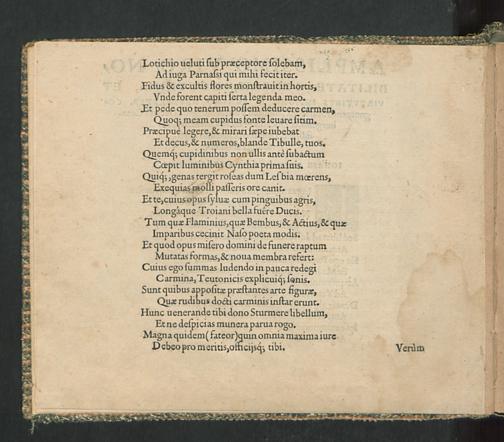 Lotichio ueluti sub præceptore solebam,
Ad iuga Parnassi qui mihi fecit iter.
Fidus & excultis flores monstrauit in hortis,
Vnde forent capiti serta legenda meo.
Et pede quo tenerum possem deducere carmen,
Quoq; meam cupidus fonte leuare sitim.
Præcipuè legere, & mirari sæpe iubebat
Et decus, & numeros, blande Tibulle, tuos.
Quemq; cupidinibus non ullis antè subactum
Cœpit luminibus Cynthia prima suis.
Quiq;, genas tergit roseas dum Lesbia mœrens,
Exequias molli passeris ore canit.
Et te, cuius opus syluæ cum pinguibus agris,
Longáque Troiani bella fuêre Ducis.
Tum quæ Flaminius, quæ Bembus, & Actius, & quæ
Imparibus cecinit Naso poeta modis.
Et quod opus misero domini de funere raptum
Mutatas formas, & noua membra refert:
Cuius ego summas ludendo in pauca redegi
Carmina, Teutonicis explicuiq; sonis.
Sunt quibus appositæ præstantes arte figuræ,
Quæ rudibus docti carminis instar erunt.
Hunc uenerande tibi dono Sturmere libellum,
Et ne despicias munera parua rogo.
Magna quidem (fateor) quin omnia maxima iure
Debeo pro meritis, officijsq; tibi.
Verùm